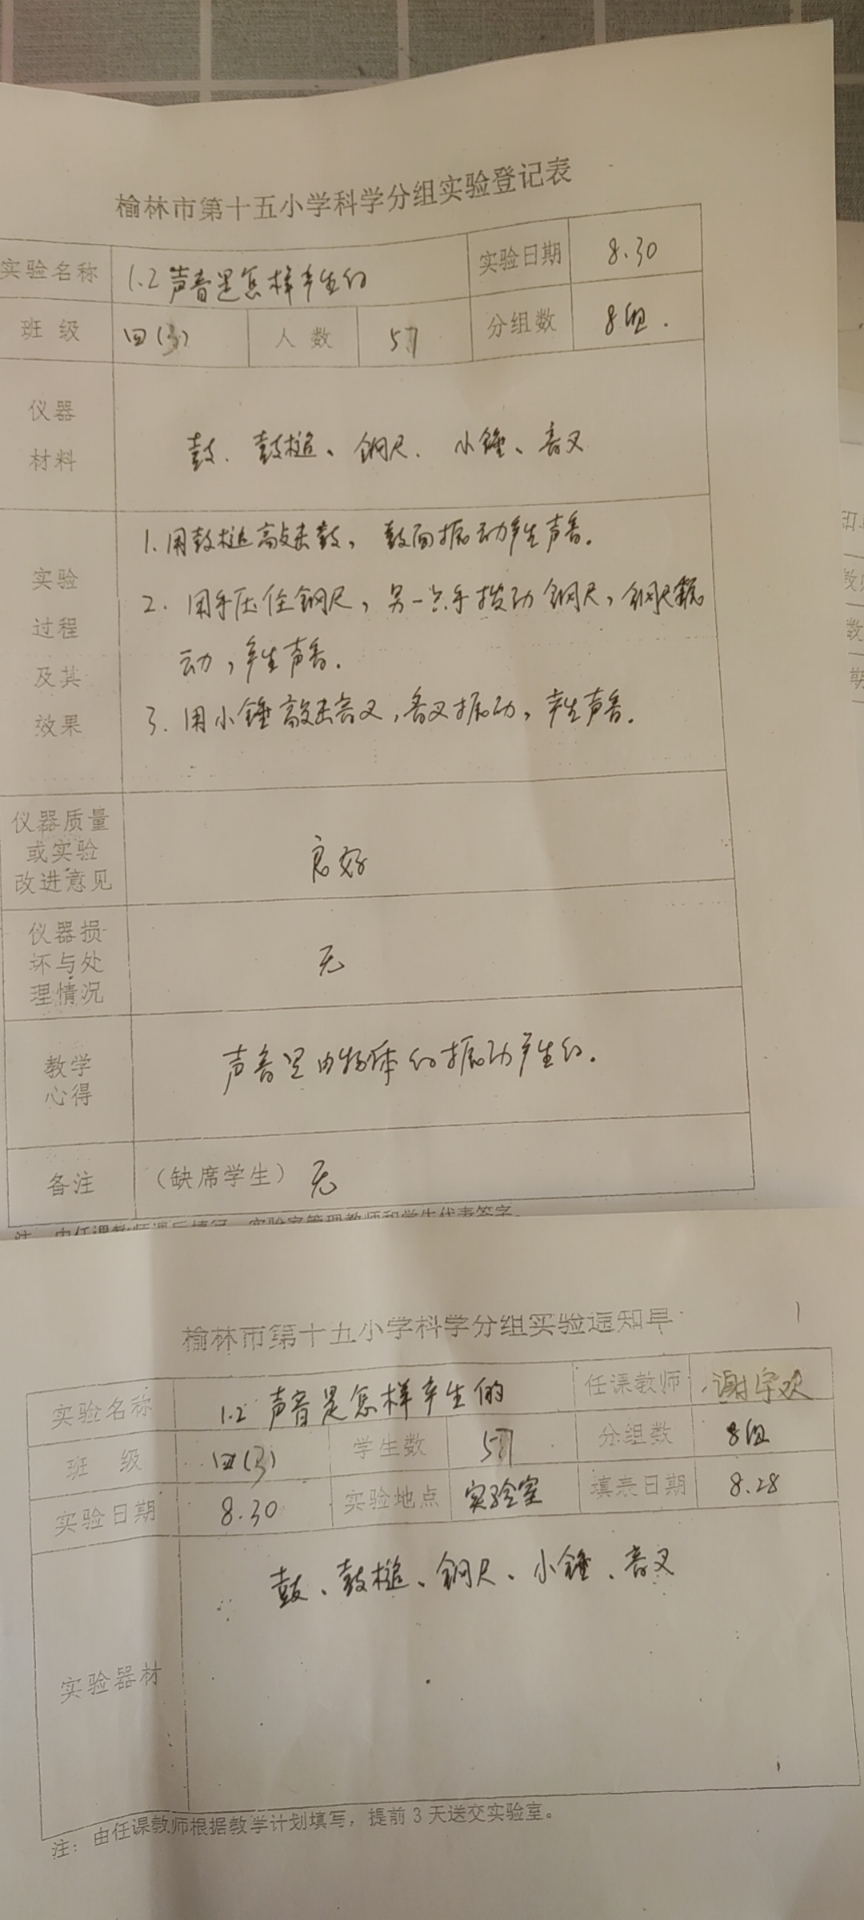 榆林市第十五小学科学分组实验登记表
实验名称 1.2 声音是怎样产生的 实验日期 8.30
班 级 四(3) 人 数 57 分组数 8组.
仪器
材料
鼓、鼓槌、钢尺、小锤、音叉
实验
过程
及其
效果
1.用鼓槌敲击鼓，鼓面振动产生声音。
2.用手压住钢尺，另一只手拨动钢尺，钢尺振
动，产生声音.
3.用小锤敲击音叉，音叉振动，产生声音.
仪器质量
或实验
改进意见
良好
仪器损
坏与处
理情况
无
教学
心得
声音是由物体的振动产生的.
备注 （缺席学生）无
榆林市第十五小学科学分组实验通知单
实验名称 1.2 声音是怎样产生的 任课教师
班 级 四(3) 学生数 57 分组数 8组
实验日期 8.30 实验地点 实验室 填表日期 8.28
实验器材 鼓、鼓槌、钢尺、小锤、音叉
注：由任课教师根据教学计划填写，提前3天送交实验室。